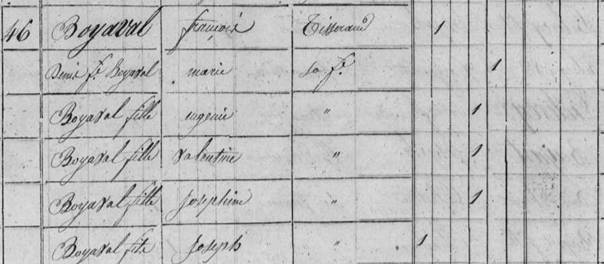 46 Boyaval françois Tisserand 1
Denis fe Boyaval marie sa fe 1
Boyaval fille eugenie " 1
Boyaval fille valentine " 1
Boyaval fille Josephine " 1
Boyaval fils Joseph " 1